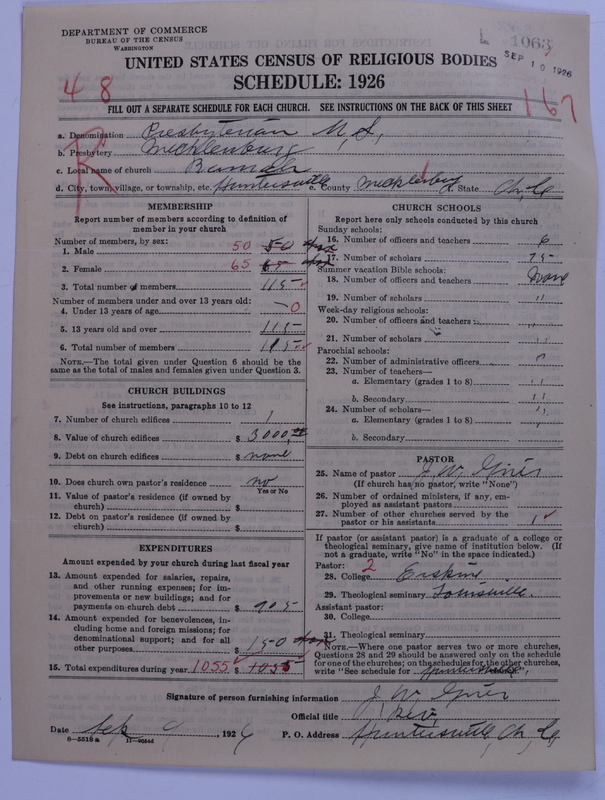 DEPARTMENT OF COMMERCE
BUREAU OF THE CENSUS
WASHINGTON
1063
SEP 10 1926
UNITED STATES CENSUS OF RELIGIOUS BODIES
SCHEDULE: 1926
4 8
167
FILL OUT A SEPARATE SCHEDULE FOR EACH CHURCH. SEE INSTRUCTIONS ON THE BACK OF THIS SHEET
R
a. Denomination Presbyterian U, S,
b. Presbytery Mecklenburg
c. Local name of church Ramah
d. City, town, village, or township, etc. Huntersville e. County Mecklenburg State N, C
MEMBERSHIP
Report number of members according to definition of member in your church
Number of members, by sex:
1. Male 50 50
2. Female 65 65
3. Total number of members 115
Number of members under and over 13 years old:
4. Under 13 years of age 0
5. 13 years old and over 115
6. Total number of members 115
NOTE.—The total given under Question 6 should be
same as the total of males and females given under Question 3.
CHURCH BUILDINGS
See instructions, paragraphs 10 to 12
7. Number of church edifices 1
8. Value of church edifices $ 3000.00
9. Debt on church edifices $ none
10. Does church own pastor's residence no
Yes or No
11. Value of pastor's residence (if owned by
church) $
12. Debt on pastor's residence (if owned by
church) $
EXPENDITURES
Amount expended by your church during last fiscal year
13. Amount expended for salaries, repairs,
and other running expenses; for im-
provements or new buildings; and for
payments on church debt $ 905
14. Amount expended for benevolences, in-
cluding home and foreign missions; for
denominational support; and for all
other purposes $ 150
15. Total expenditures during year 1055 $ 1055
CHURCH SCHOOLS
Report here only schools conducted by this church
Sunday schools:
16. Number of officers and teachers 6
17. Number of scholars 75
Summer vacation Bible schools:
18. Number of officers and teachers None
19. Number of scholars "
Week-day religious schools:
20. Number of officers and teachers "
21. Number of scholars "
Parochial schools:
22. Number of administrative officers "
23. Number of teachers—
a. Elementary (grades 1 to 8) "
b. Secondary "
24. Number of scholars—
a. Elementary (grades 1 to 8) "
b. Secondary
PASTOR
25. Name of pastor J. W. Grier
(If church has no pastor, write "None")
26. Number of ordained ministers, if any, em-
ployed as assistant pastors
27. Number of other churches served by the
pastor or his assistants 1
If pastor (or assistant pastor) is a graduate of a college or
theological seminary, give name of institution below. (If
not a graduate, write "No" in the space indicated.)
Pastor: 2
28. College Erskine
29. Theological seminary Louisville
Assistant pastor:
30. College
31. Theological seminary
NOTE.—Where one pastor serves two or more churches,
Questions 28 and 29 should be answered only on the schedule
for one of the churches; on the schedules for the other churches,
write "See schedule for Huntersville".
Signature of person furnishing information J. W. Grier
Official title Rev,
Date Sep 9, 1926 P. O. Address Huntersville, N, C,
8—5518a 11—9054d